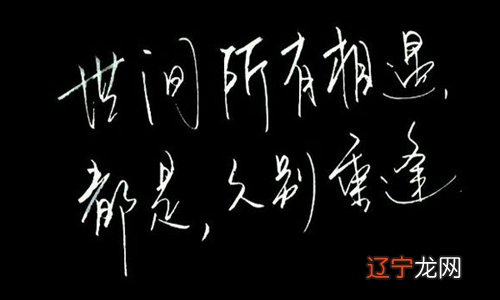 世间所有相遇,
都是,久别重逢
辽宁龙网